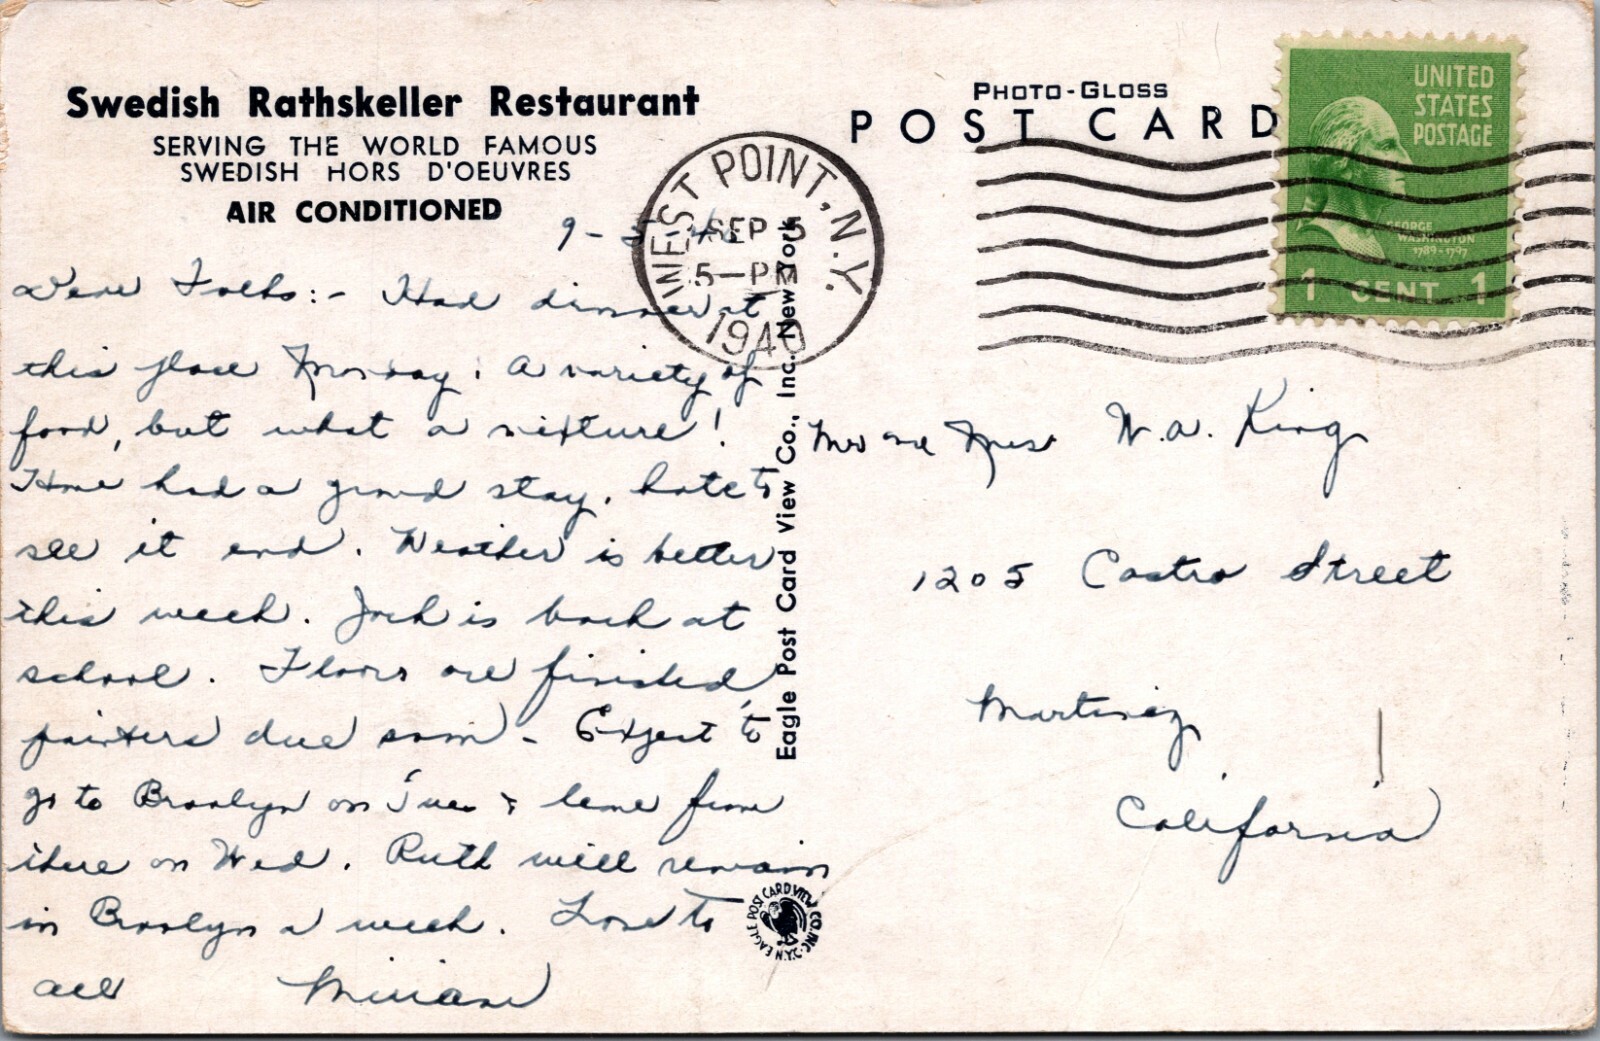 Swedish Rathskeller Restaurant
SERVING THE WORLD FAMOUS
SWEDISH HORS D'OEUVRES
AIR CONDITIONED
9-5-40
Dear Folks:- Had dinner at
this place Monday. A variety of
food, but what a mixture!
Have had a grand stay. hate to
see it end. Weather is better
this week. Jack is back at
school. Floors are finished,
painters due soon - Expect to
go to Brooklyn on Tues & leave from
there on Wed. Ruth will remain
in Brooklyn a week. Love to
all Miriam
WEST POINT, N.Y.
SEP 5
5-PM
1940
Eagle Post Card View Co., Inc. New York
EAGLE POST CARD VIEW CO. INC. N.Y.C.
PHOTO-GLOSS
POST CARD
UNITED
STATES
POSTAGE
GEORGE
WASHINGTON
1789-1797
1 CENT 1
Mr and Mrs W. A. King
1205 Castro Street
Martinez
California